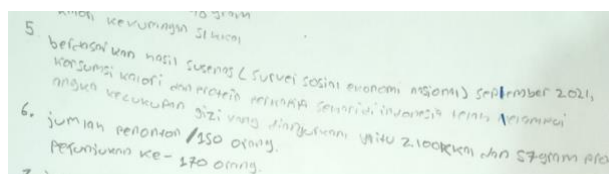 gram
kalori kekurangan
5. berdasarkan hasil susenas (survei sosial ekonomi nasional) september 2021,
konsumsi kalori dan protein perkapita sehari di indonesia telah
angka kecukupan gizi yang dianjurkan yaitu 2.100kkal dan 57gram
6. jumlah penonton /150 orang.
pertunjukan ke-170 orang.